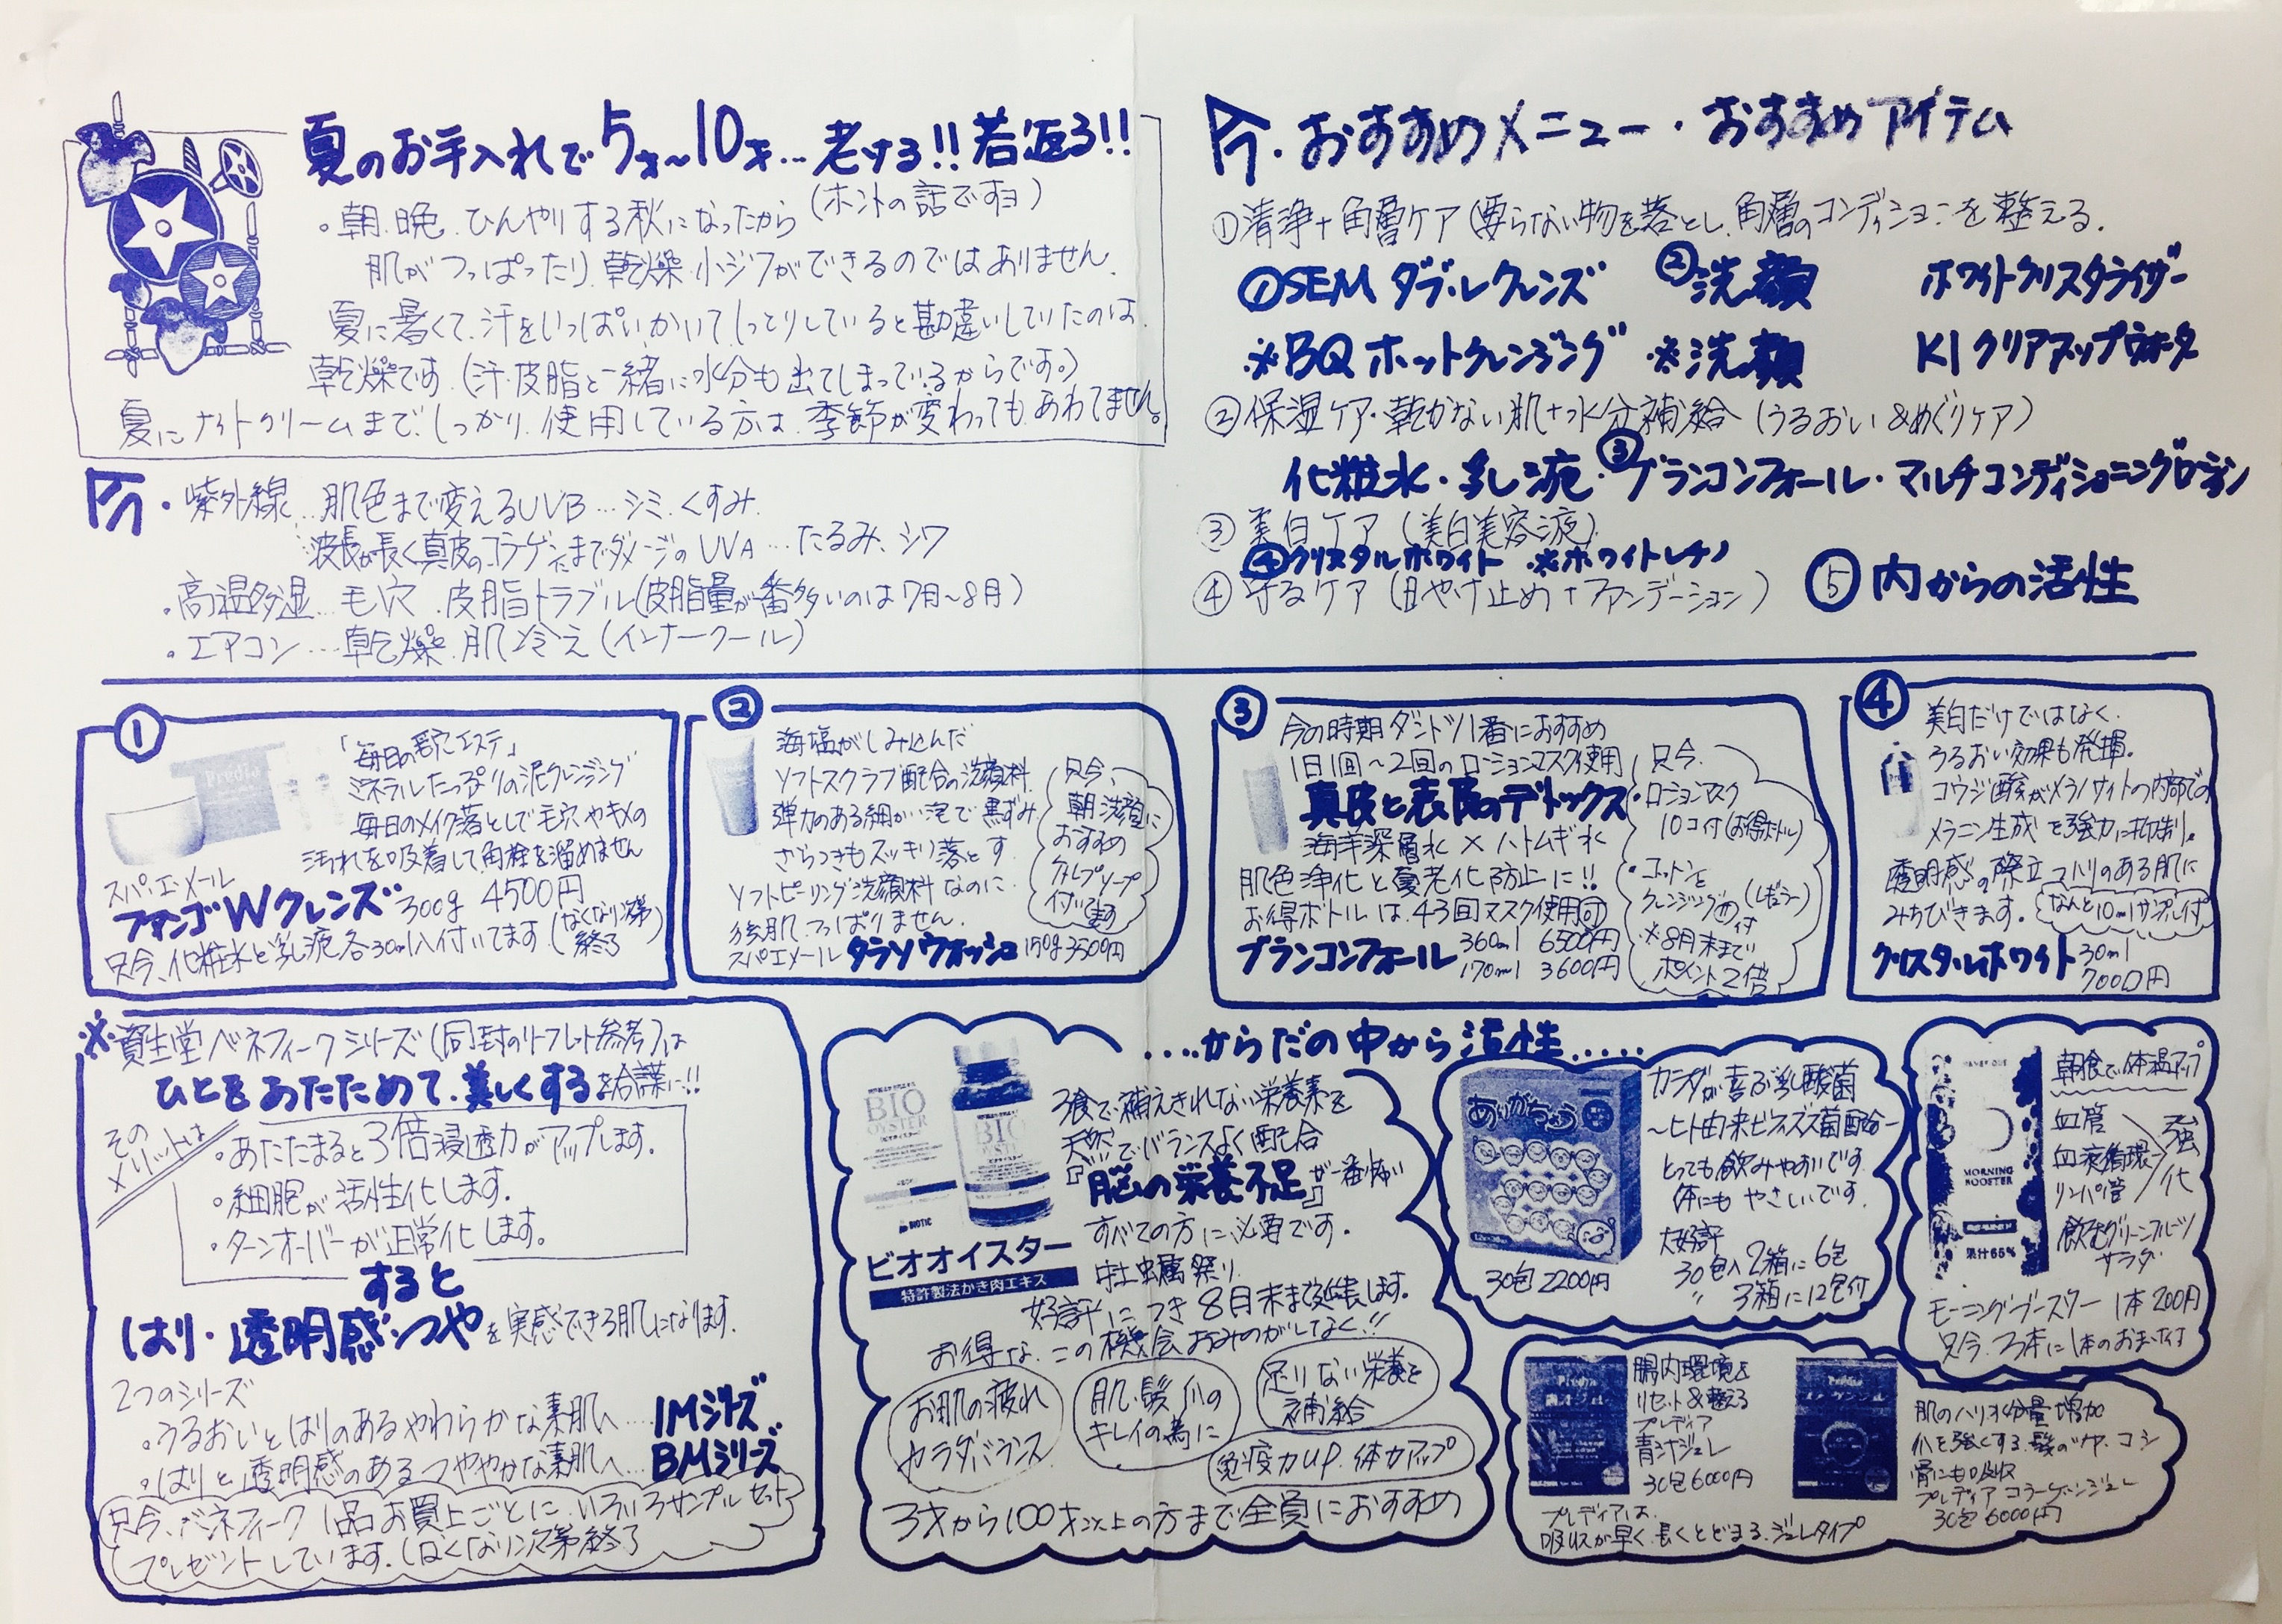 夏のお手入れで5才~10才…老ける!!若返る!!
(ホントの話ですヨ)
・朝.晩.ひんやりする秋になったから
肌がつっぱったり.乾燥.小ジワができるのではありません.
夏に暑くて.汗をいっぱいかいてしっとりしていると勘違いしていたのは.
乾燥です.(汗.皮脂と一緒に水分も出てしまっているからです。)
夏にナイトクリームまで.しっかり.使用している方は.季節が変わってもあわてません。
今.おすすめメニュー・おすすめアイテム
①清浄+角層ケア(要らない物を落とし.角層のコンディションを整える.
①SEMダブルクレンズ ②洗顔 ホワイトクリスタライザー
※BQホットクレンジング ※洗顔 KIクリアアップウォーター
②保湿ケア・乾かない肌+水分補給(うるおい&めぐりケア)
化粧水・乳液・③ブランコンフォール・マルチコンディショニングローション
③美白ケア(美白美容液)
④クリスタルホワイト ※ホワイトレチノ
④守るケア(日やけ止め+ファンデーション)
⑤内からの活性
今・紫外線…肌色まで変えるUVB…シミ.くすみ.
波長が長く真皮のコラーゲンまでダメージのUVA…たるみ、シワ
・高温多湿…毛穴.皮脂トラブル(皮脂量が一番多いのは7月~8月)
・エアコン…乾燥.肌冷え(インナークール)
①
「毎日の毛穴エステ」
ミネラルたっぷりの泥クレンジング
毎日のメイク落としで毛穴やキメの
汚れを吸着して角栓を溜めません
スパ・エ・メール
ファンゴWクレンズ 300g 4500円
只今、化粧水と乳液各30ml入付いてます(なくなり次第終了)
②
海塩がしみ込んだ
ソフトスクラブ配合の洗顔料.
弾力のある細かい泡で黒ずみ
ざらつきもスッキリ落とす.
ソフトピーリング洗顔料なのに.
後肌.つっぱりません.
スパエメール タラソウォッシュ 150g 3500円
只今、
朝洗顔に
おすすめ
付いてます
③
今の時期ダントツ1番におすすめ
1日1回~2回のローションマスク使用
真皮と表皮のデトックス
海洋深層水×ハトムギ水
肌色浄化と夏老化防止に!!
お得ボトルは.43回マスク使用可
ブランコンフォール 360ml 6500円
170ml 3600円
只今.
・ローションマスク
10コ付(お得ボトル)
・コットンと
クレンジング付(レギュラー)
※8月末まで
ポイント2倍
④
美白だけではなく.
うるおい効果も発揮.
コウジ酸がメラノサイトの内部での
メラニン生成を強力に抑制.
透明感の際立つハリのある肌に
みちびきます.(なんと10mlサンプル付)
クリスタルホワイト 30ml
7000円
※資生堂ベネフィークシリーズ(同封のリーフレット参考)は
ひとをあたためて.美しくするを合言葉に!!
そのメリットは
・あたたまると3倍浸透力がアップします.
・細胞が活性化します.
・ターンオーバーが正常化します.
すると
はり・透明感・つやを実感できる肌になります.
2つのシリーズ
・うるおいとはりのあるやわらかな素肌へ…IMシリーズ
・はりと透明感のあるつややかな素肌へ…BMシリーズ
只今、ベネフィーク1品お買上ごとに.いろいろサンプルセット
プレゼントしています.(なくなり次第終了
….からだの中から活性.….
BIO
OYSTER
BIOTIC
ビオオイスター
特許製法かき肉エキス
3食で補えきれない栄養素を
天然でバランスよく配合
『脳の栄養不足』が一番怖い
すべての方に必要です.
牡蠣祭り
好評につき8月末まで延長します.
お得な.この機会おみのがしなく!!
お肌の疲れ
カラダバランス
肌・髪.爪の
キレイの為に
足りない栄養を
補給
免疫力up.体力アップ
3才から100才以上の方まで全員におすすめ
ありがちゅう
カラダが喜ぶ乳酸菌
~ヒト由来ビフィズス菌配合~
とっても飲みやすいです.
体にもやさしいです.
大好評
30包入2箱に6包
〃 3箱に12包付
30包 2200円
MORNING
BOOSTER
果汁65%
朝食で体温アップ
血管
血液循環
リンパ管
強化
飲むグリーンフルーツ
サラダ
モーニングブースター 1本200円
只今.3本に1本のおまけ付
腸内環境を
リセット&整える
プレディア
青汁ジュレ
30包6000円
肌のハリ水分量増加
爪を強くする.髪のツヤ.コシ
骨にも吸収
プレディアコラーゲンジュレ
30包6000円
プレディアは.
吸収が早く.長くとどまる.ジュレタイプ